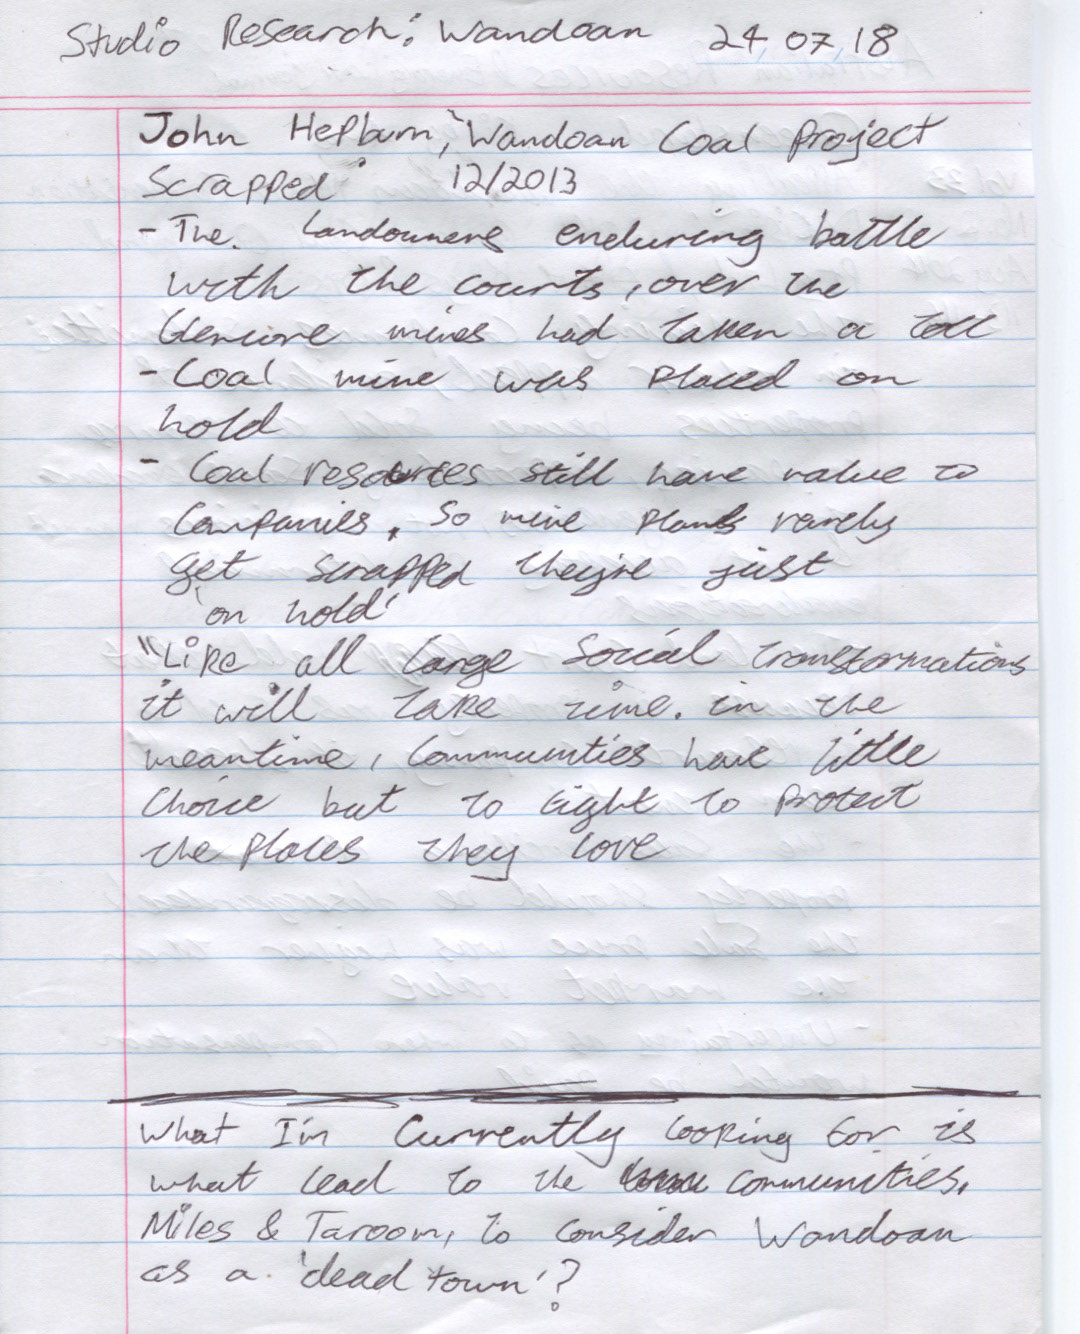 Studio Research: Wandoan 24,07,18
John Hepburn, "Wandoan Coal Project
Scrapped" 12/2013
- The. Landowners enduring battle
with the courts, over the
Glencore mines had taken a toll
- Coal mine was placed on
hold
- Coal resources still have value to
Companies. So mine plants rarely
get scrapped they're just
'on hold'
"Like all large Social transformations
it will take time. in the
meantime, Communities have little
choice but to fight to protect
the places they love
What I'm Currently looking for is
what lead to the communities,
Miles & Taroom, to consider Wandoan
as a 'dead town'?